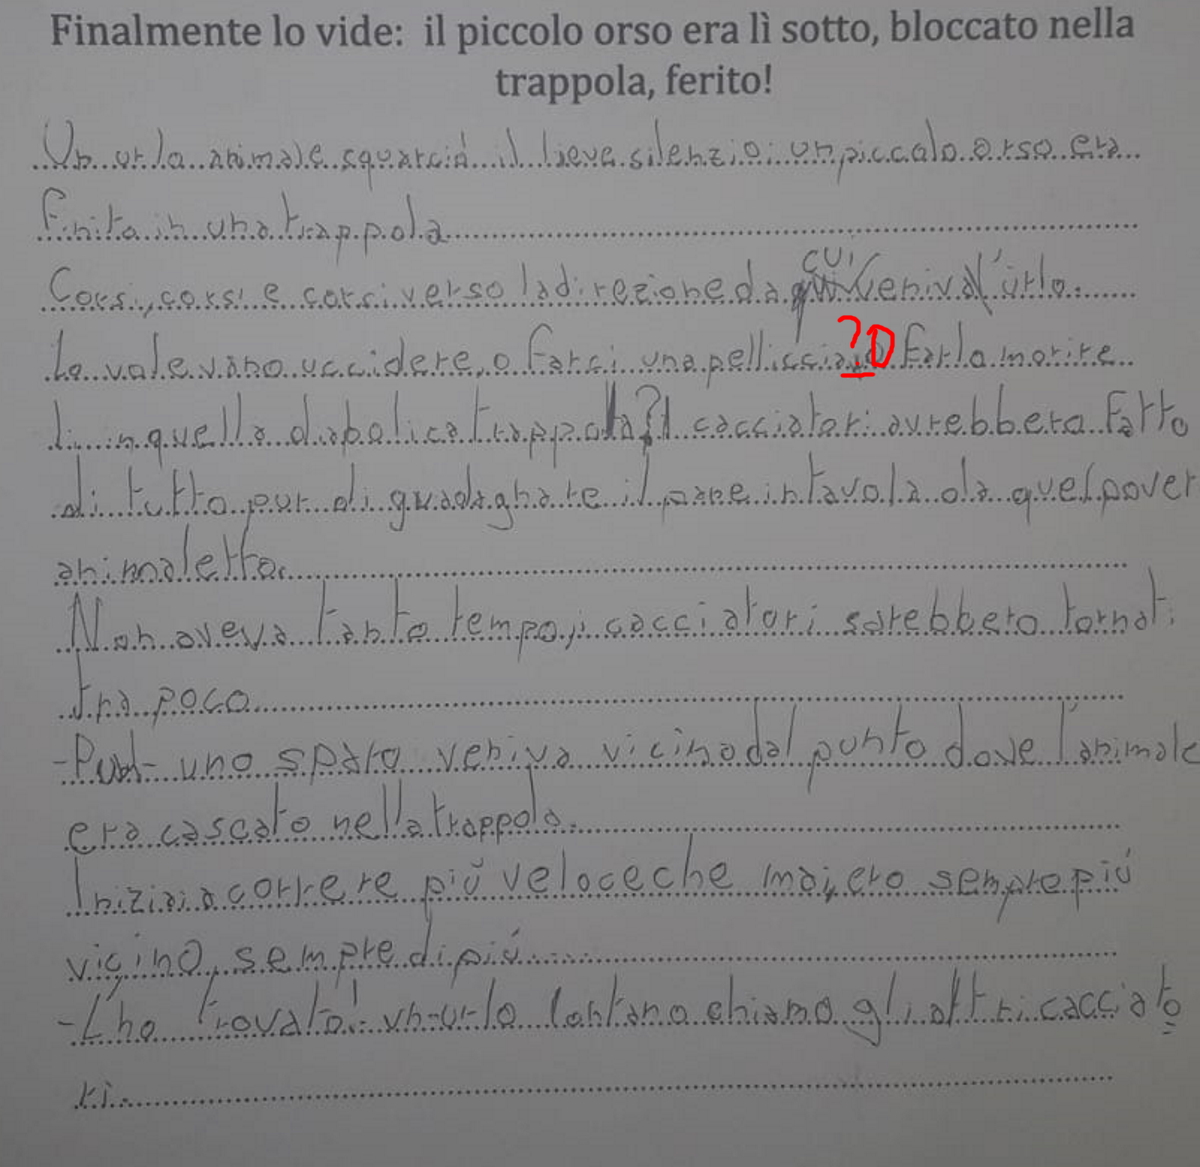 Finalmente lo vide: il piccolo orso era lì sotto, bloccato nella
trappola, ferito!
Un urlo animale squarciò il lieve silenzio: un piccolo orso era
finito in una trappola
Corsi, corsi e corsi verso la direzione da cui veniva l'urlo.
Lo volevano uccidere, o farci una pelliccia ? O farlo morire
lì in quella diabolica trappola? I cacciatori avrebbero fatto
di tutto pur di guadagnare il pane in tavola da quel pover
animaletto.
Non aveva tanto tempo, i cacciatori sarebbero tornati
tra poco
- Pum - uno sparo veniva vicino dal punto dove l'animale
era cascato nella trappola.
Iniziai a correre più veloce che mai, ero sempre più
vicino, sempre di più
- L'ho trovato! - un urlo lontano chiamò gli altri cacciato
ri.